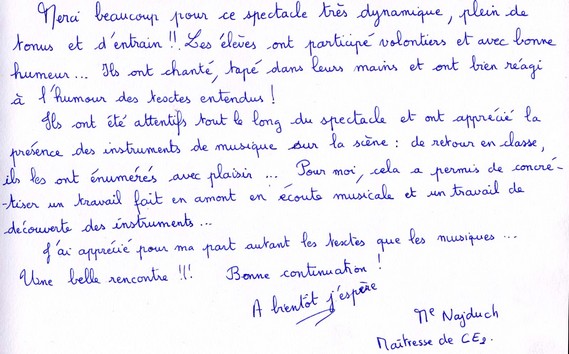 Merci beaucoup pour ce spectacle très dynamique, plein de
tonus et d'entrain !! Les élèves ont participé volontiers et avec bonne
humeur... Ils ont chanté, tapé dans leurs mains et ont bien réagi
à l'humour des textes entendus !
Ils ont été attentifs tout le long du spectacle et ont apprécié la
présence des instruments de musique sur la scène : de retour en classe,
ils les ont énumérés avec plaisir ... Pour moi, cela a permis de concré-
-tiser un travail fait en amont en écoute musicale et un travail de
découverte des instruments ...
J'ai apprécié pour ma part autant les textes que les musiques ...
Une belle rencontre !!! Bonne continuation !
A bientôt j'espère
Me Najduch
Maîtresse de CE2.